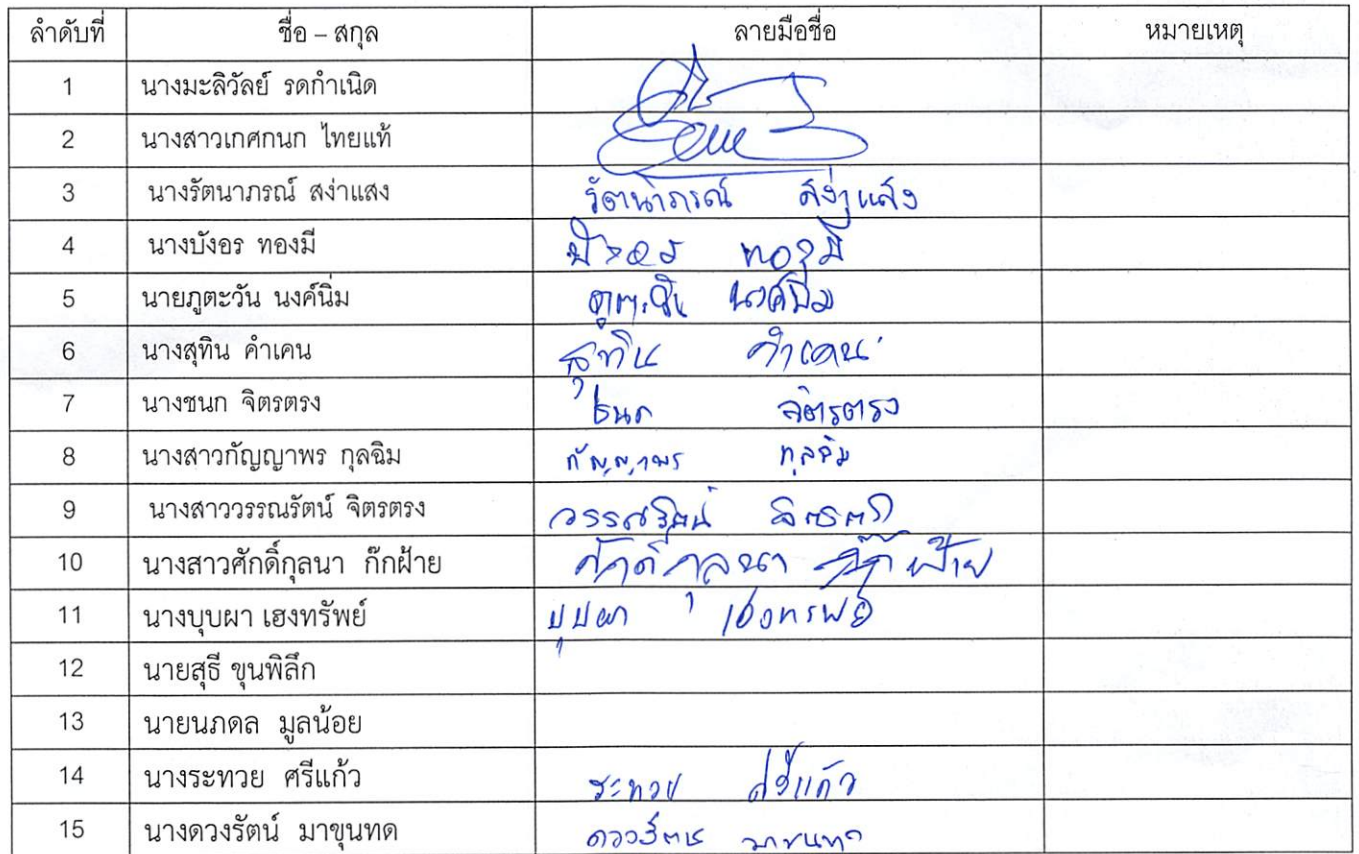 ลำดับที่ ชื่อ – สกุล ลายมือชื่อ หมายเหตุ
1 นางมะลิวัลย์ รดกำเนิด
2 นางสาวเกศกนก ไทยแท้
3 นางรัตนาภรณ์ สง่าแสง รัตนาภรณ์ สง่าแสง
4 นางบังอร ทองมี บังอร ทองมี
5 นายภูตะวัน นงค์นิ่ม ภูตะวัน นงค์นิ่ม
6 นางสุทิน คำเคน สุทิน คำเคน
7 นางชนก จิตรตรง ชนก จิตรตรง
8 นางสาวกัญญาพร กุลฉิม กัญญาพร กุลฉิม
9 นางสาววรรณรัตน์ จิตรตรง วรรณรัตน์ จิตรตรง
10 นางสาวศักดิ์กุลนา ก๊กฝ้าย ศักดิ์กุลนา ก๊กฝ้าย
11 นางบุบผา เฮงทรัพย์ บุบผา เฮงทรัพย์
12 นายสุธี ขุนพิลึก
13 นายนภดล มูลน้อย
14 นางระทวย ศรีแก้ว ระทวย ศรีแก้ว
15 นางดวงรัตน์ มาขุนทด ดวงรัตน์ มาขุนทด